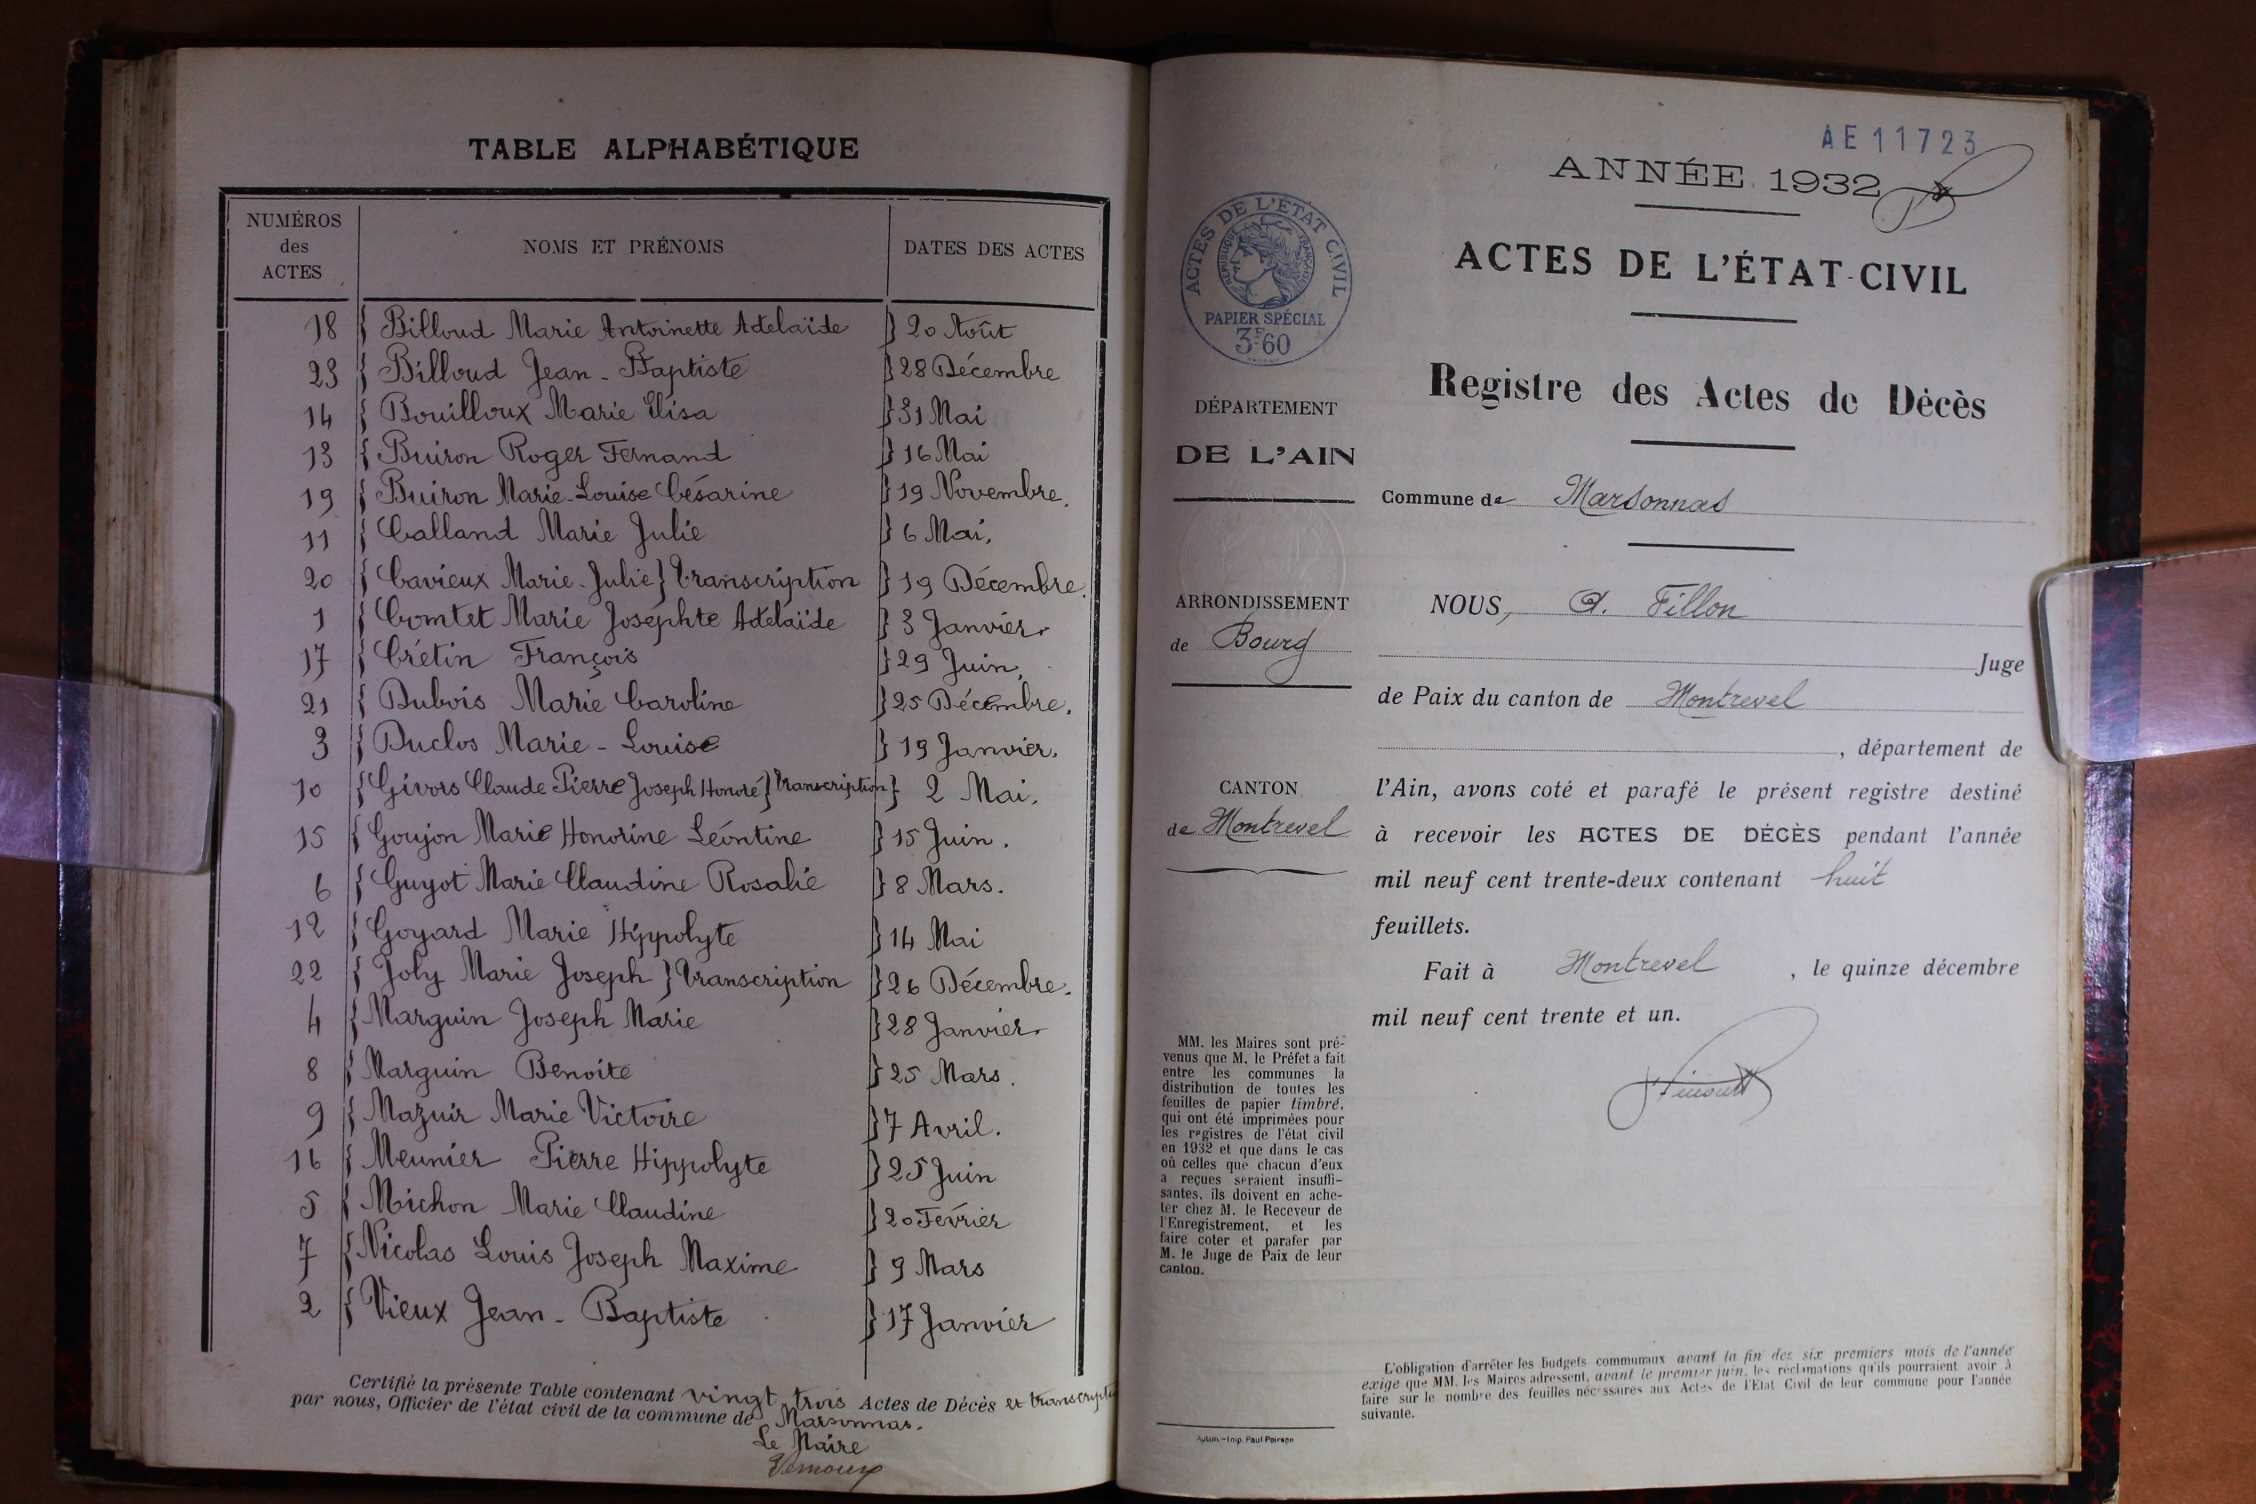 TABLE ALPHABÉTIQUE
NUMÉROS des ACTES NOMS ET PRÉNOMS DATES DES ACTES
18 { Billoud Marie Antoinette Adelaïde } 20 Août
23 { Billoud Jean - Baptiste } 28 Décembre
14 { Bouilloux Marie Elisa } 31 Mai
13 { Buiron Roger Fernand } 16 Mai
19 { Buiron Marie-Louise Césarine } 19 Novembre.
11 { Calland Marie Julie } 6 Mai.
20 { Cavieux Marie-Julie } transcription } 19 Décembre.
1 { Comtet Marie Josephte Adelaïde } 3 Janvier.
17 { Crétin François } 29 Juin.
21 { Dubois Marie Caroline } 25 Décembre.
3 { Duclos Marie - Louise } 19 Janvier.
10 { Givors Claude Pierre Joseph Honoré } transcription } 2 Mai.
15 { Goujon Marie Honorine Léontine } 15 Juin.
6 { Guyot Marie Claudine Rosalie } 8 Mars.
12 { Goyard Marie Hippolyte } 14 Mai
22 { Joly Marie Joseph } transcription } 26 Décembre.
4 { Marguin Joseph Marie } 28 Janvier.
8 { Marguin Benoite } 25 Mars.
9 { Mazuir Marie Victoire } 7 Avril.
16 { Meunier Pierre Hippolyte } 25 Juin
5 { Michon Marie Claudine } 20 Février
7 { Nicolas Louis Joseph Maxime } 9 Mars
2 { Vieux Jean - Baptiste } 17 Janvier
Certifié la présente Table contenant vingt trois Actes de Décès et transcripti
par nous, Officier de l'état civil de la commune de Marsonnas.
Le Maire
AE11723
ANNÉE 1932
ACTES DE L'ÉTAT CIVIL
RÉPUBLIQUE FRANÇAISE
PAPIER SPÉCIAL
3F60
ACTES DE L'ÉTAT-CIVIL
Registre des Actes de Décès
DÉPARTEMENT
DE L'AIN
Commune de Marsonnas
ARRONDISSEMENT
de Bourg
NOUS, A. Fillon
Juge
de Paix du canton de Montrevel
, département de
CANTON
de Montrevel
l'Ain, avons coté et parafé le présent registre destiné
à recevoir les ACTES DE DÉCÈS pendant l'année
mil neuf cent trente-deux contenant huit
feuillets.
Fait à Montrevel, le quinze décembre
mil neuf cent trente et un.
MM. les Maires sont pré-
venus que M. le Préfet a fait
entre les communes la
distribution de toutes les
feuilles de papier timbré,
qui ont été imprimées pour
les registres de l'état civil
en 1932 et que dans le cas
où celles que chacun d'eux
a reçues seraient insuffi-
santes, ils doivent en ache-
ter chez M. le Receveur de
l'Enregistrement, et les
faire coter et parafer par
M. le Juge de Paix de leur
canton.
L'obligation d'arrêter les budgets communaux avant la fin des six premiers mois de l'année
exige que MM. les Maires adressent, avant le premier juin, les réclamations qu'ils pourraient avoir à
faire sur le nombre des feuilles nécessaires aux Actes de l'Etat Civil de leur commune pour l'année
suivante.
Autun.—Imp. Paul Poirson